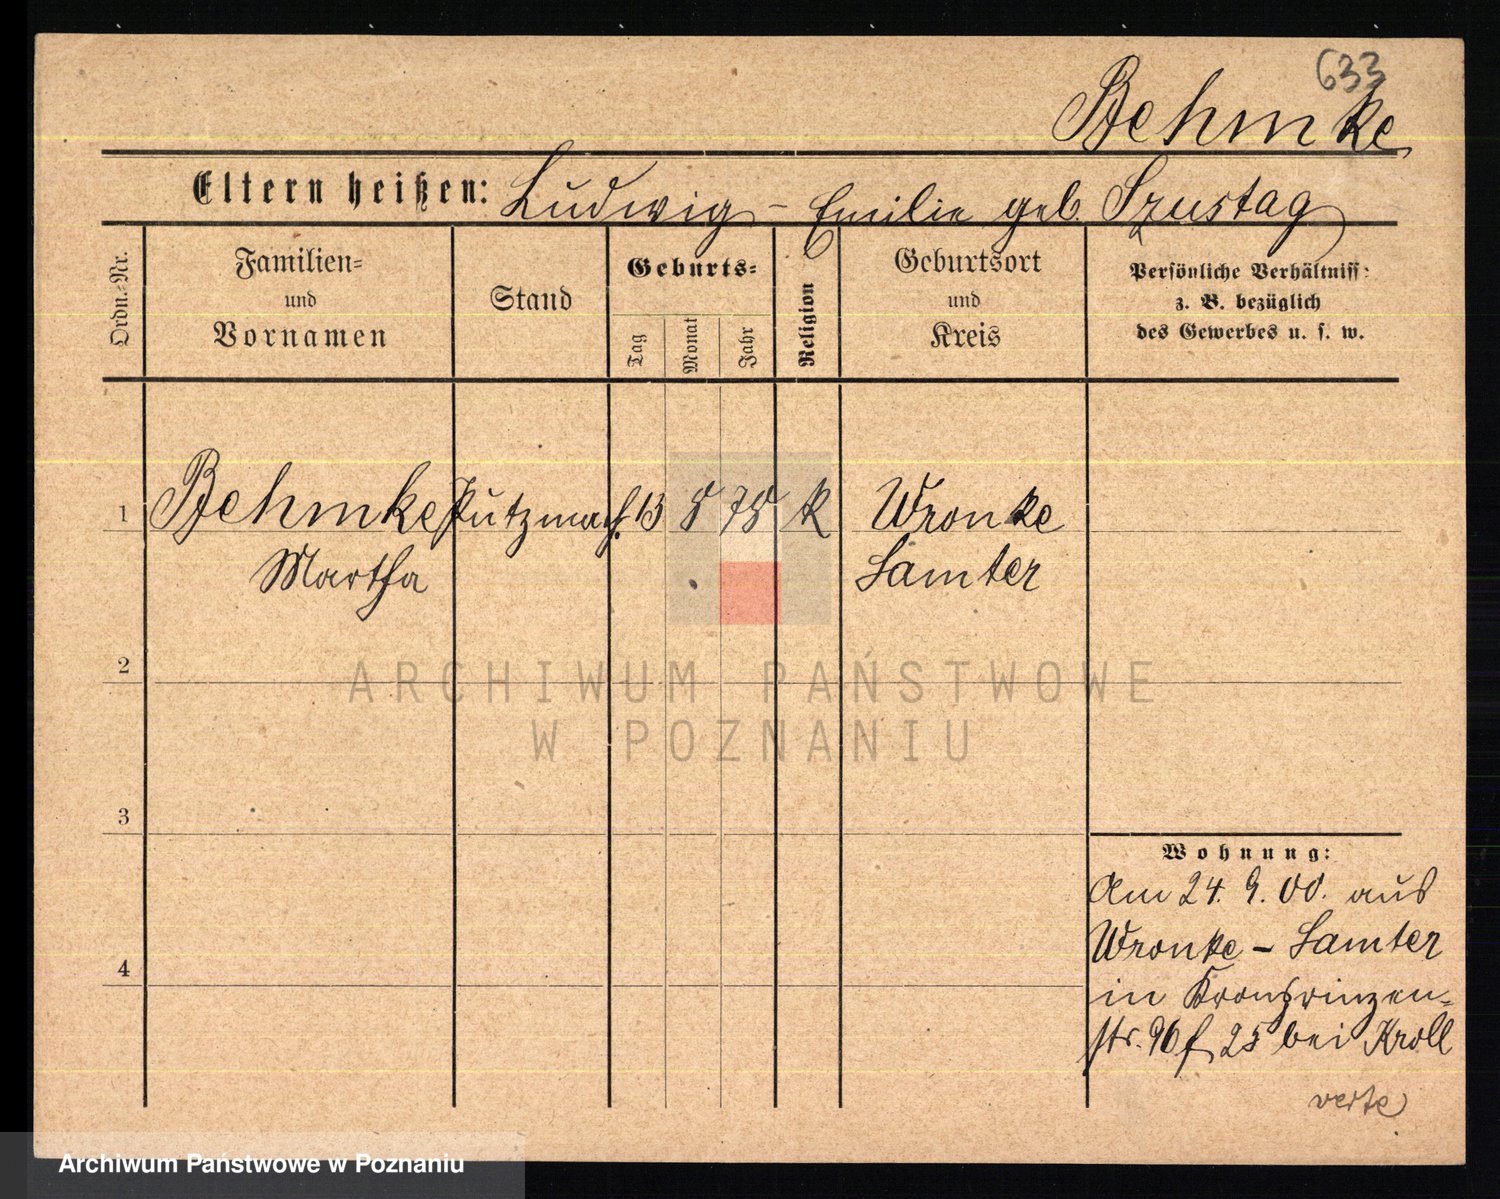 633
Behmke
Eltern heißen: Ludwig – Emilie geb. Szustag
Ordn.-Nr.
Familien-
und
Vornamen
Stand
Geburts-
Tag
Monat
Jahr
Religion
Geburtsort
und
Kreis
Persönliche Verhältniss:
z. B. bezüglich
des Gewerbes u. s. w.
1 Behmke Putzmach. 13 5 75 k Wronke
Martha Samter
2
ARCHIWUM PAŃSTWOWE
W POZNANIU
3
Wohnung:
Am 24. 9. 00. aus
Wronke – Samter
4
in Kronprinzen-
str. 96 f, 25 bei Kroll
verte
Archiwum Państwowe w Poznaniu